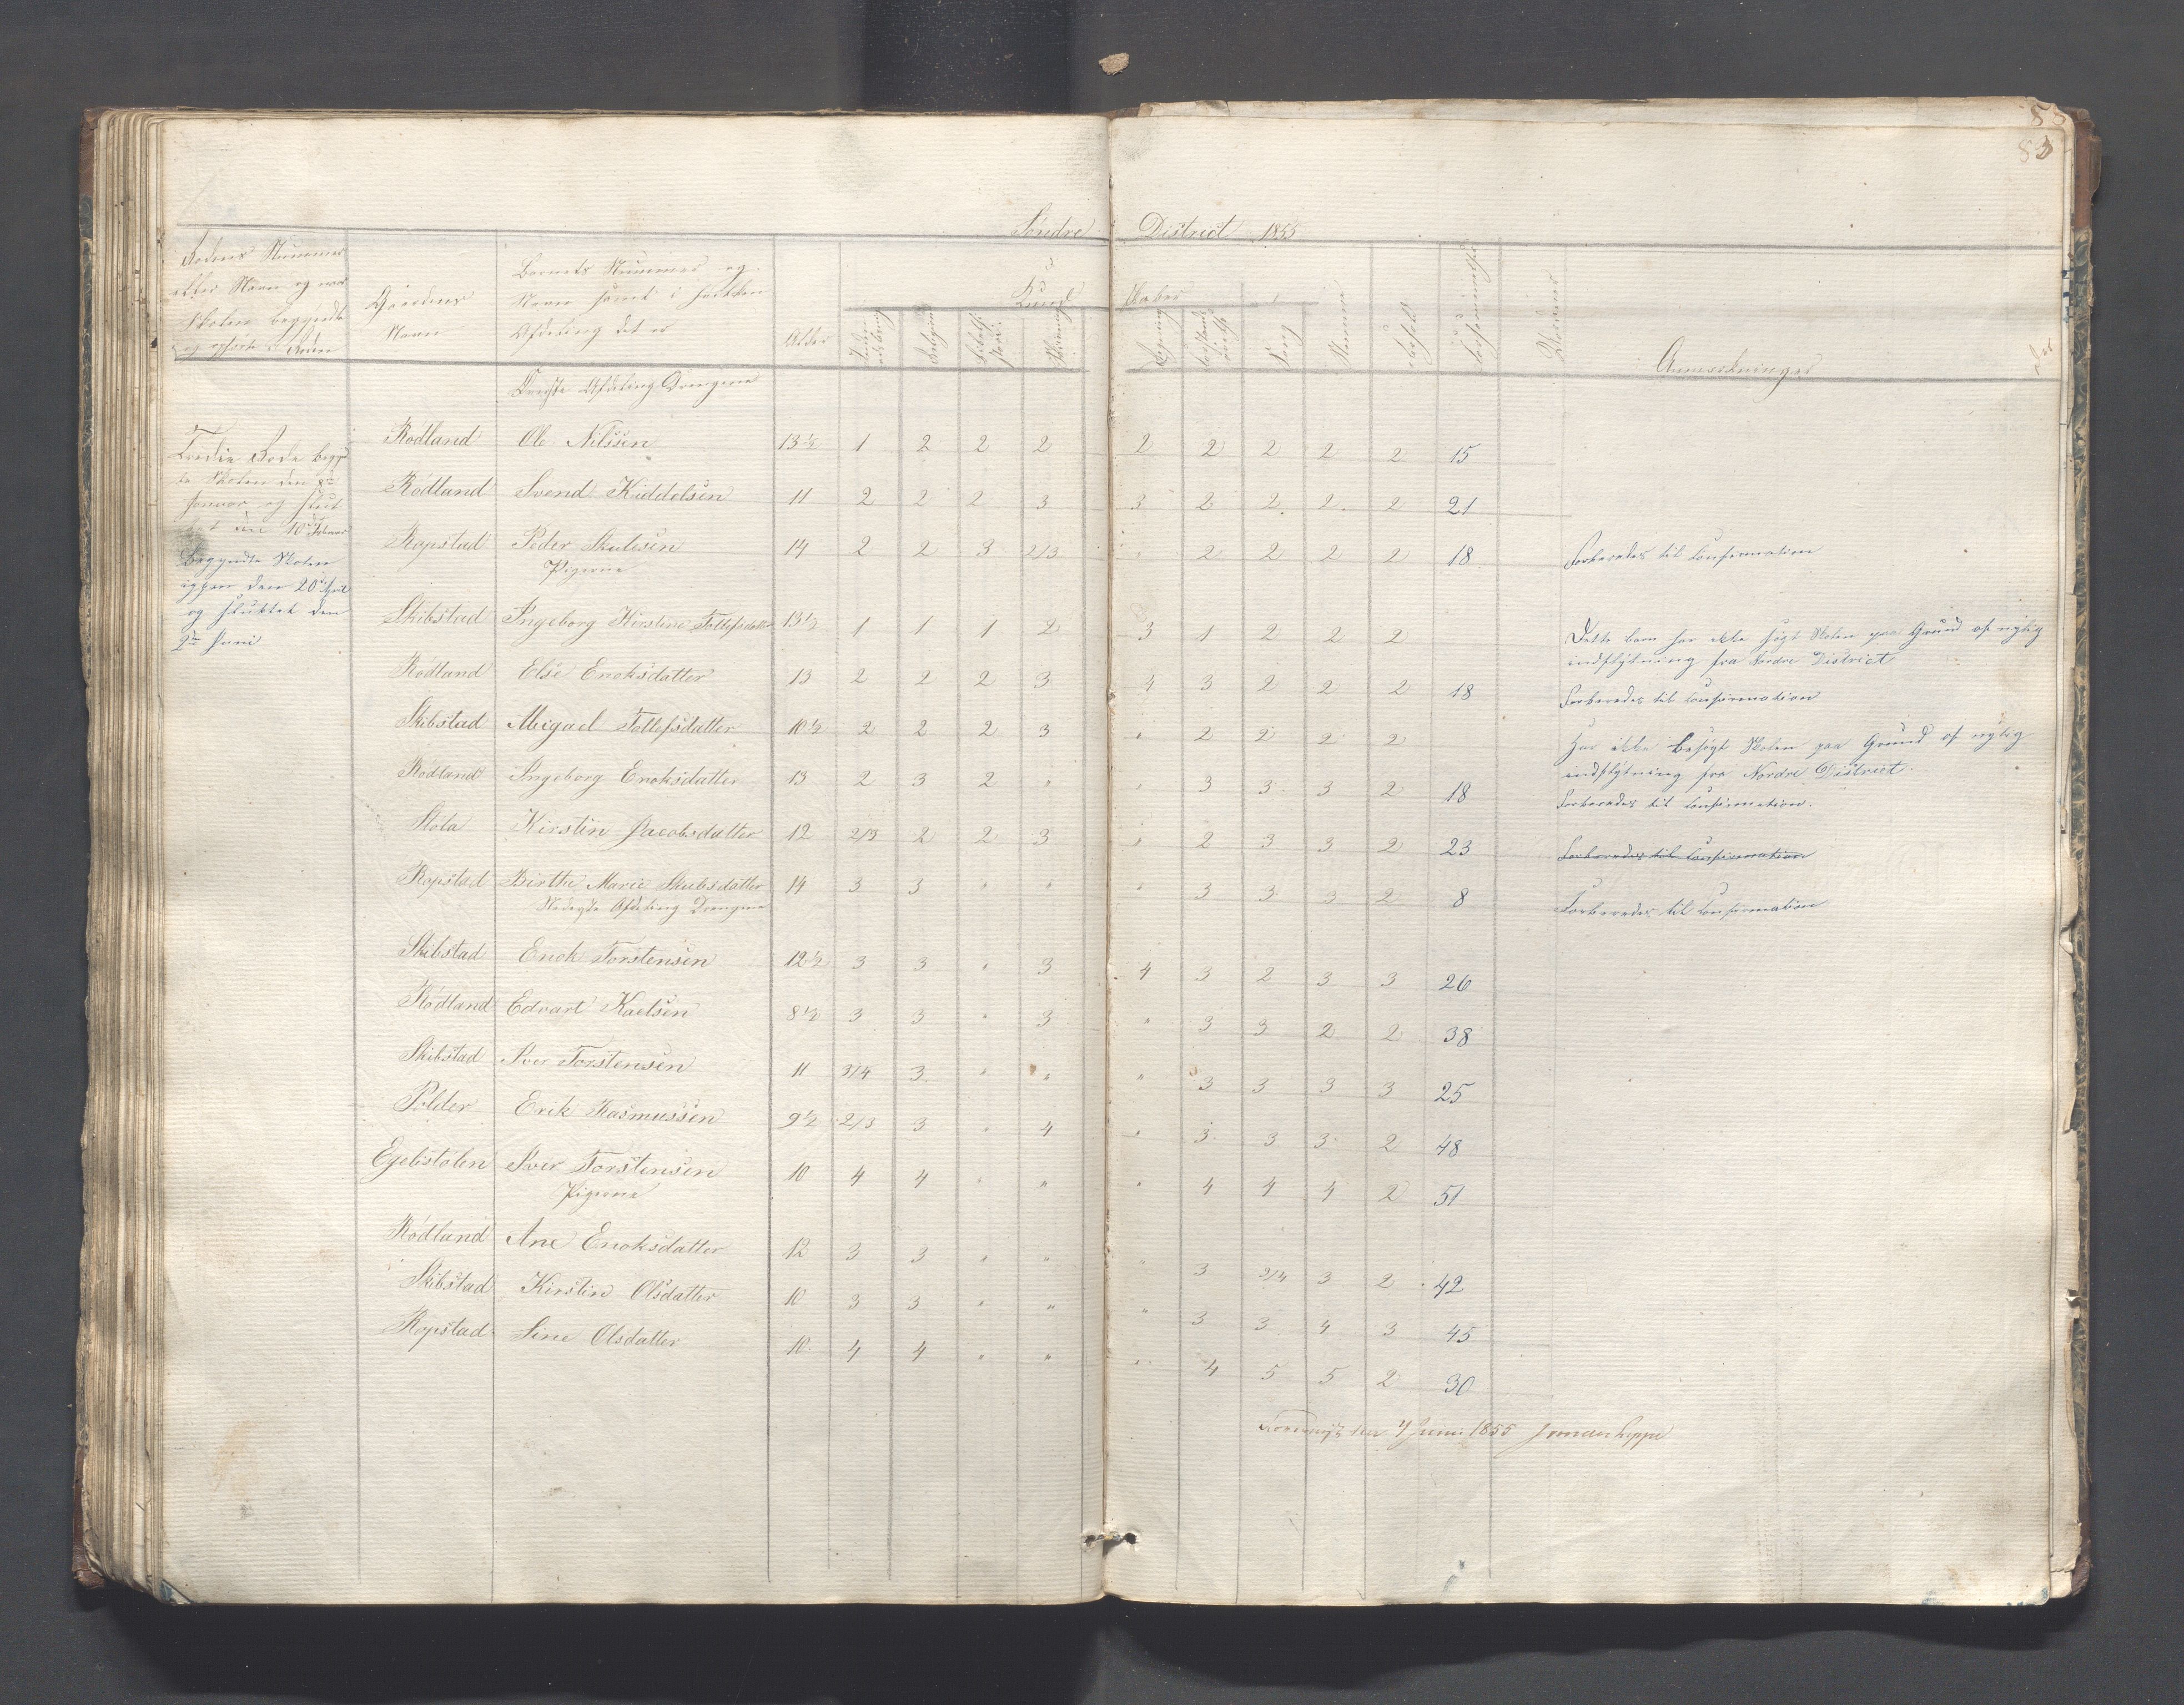 83
Søndre District 1855
Rodens Nummer
eller Navn og naar
Skolen begyndte
og ophørte i Roden
Gaardens
Navn
Barnets Nummer og
Navn samt i hvilken
Afdeling det er
Alder
Kundskaber
Religion
Skrivning
Regning
Sang
Forsømmelser
Anmærkninger
Øverste Afdeling Drengene
Tredie Rode begynd
te Skolen den 8de
Januar og slut
tet den 10de Februar
Begyndte Skolen
igjen den 20de April
og sluttet den
2den Juni
Rødland Ole Nilssen 13½ 1 2 2 2 2 2 2 2 2 15
Rødland Svend Kiddelsen 11 2 2 2 3 3 2 2 2 2 21
Ropstad Peder Skulesen 14 2 2 3 2/3 " 2 2 2 2 18 Forberedes til Confirmation
Pigerne
Skibstad Ingeborg Kirstine Tollefsdatter 13½ 1 1 1 2 3 1 2 2 2 Dette barn har ikke søgt Skolen paa Grund af nylig
indflytning fra Nordre District
Rødland Else Enoksdatter 13 2 2 2 3 4 3 2 2 2 18 Forberedes til Confirmation
Skibstad Abigael Tollefsdatter 10½ 2 2 2 3 " 2 2 2 2 Har ikke besøgt Skolen paa Grund af nylig
indflytning fra Nordre District.
Rødland Ingeborg Enoksdatter 13 2 3 2 " " 3 3 3 2 18 Forberedes til Confirmation.
Støla Kirstin Jacobsdatter 12 2/3 2 2 3 " 2 3 3 2 23 Forberedes til Confirmation
Ropstad Birthe Marie Skulesdatter 14 3 3 " " " 3 3 3 2 8 Forberedes til Confirmation
Nederste Afdeling Drengene
Skibstad Enok Torstensen 12½ 3 3 " 3 4 3 2 3 3 26
Rødland Edvart Kaelsen 8½ 3 3 " 3 " 3 3 2 2 38
Skibstad Iver Torstensen 11 3/4 3 " " " 3 3 3 3 25
Polder Erik Rasmussen 9½ 2/3 3 " 4 " 3 3 3 2 48
Egelistølen Iver Torstensen 10 4 4 " " " 4 4 4 2 51
Pigerne
Rødland Ane Enoksdatter 12 3 3 " " " 3 3/4 3 2 42
Skibstad Kirstin Olsdatter 10 3 3 " " " 3 3 4 3 45
Ropstad Sine Olsdatter 10 4 4 " " " 4 5 5 2 30
Foreviist den 4 Juni 1855